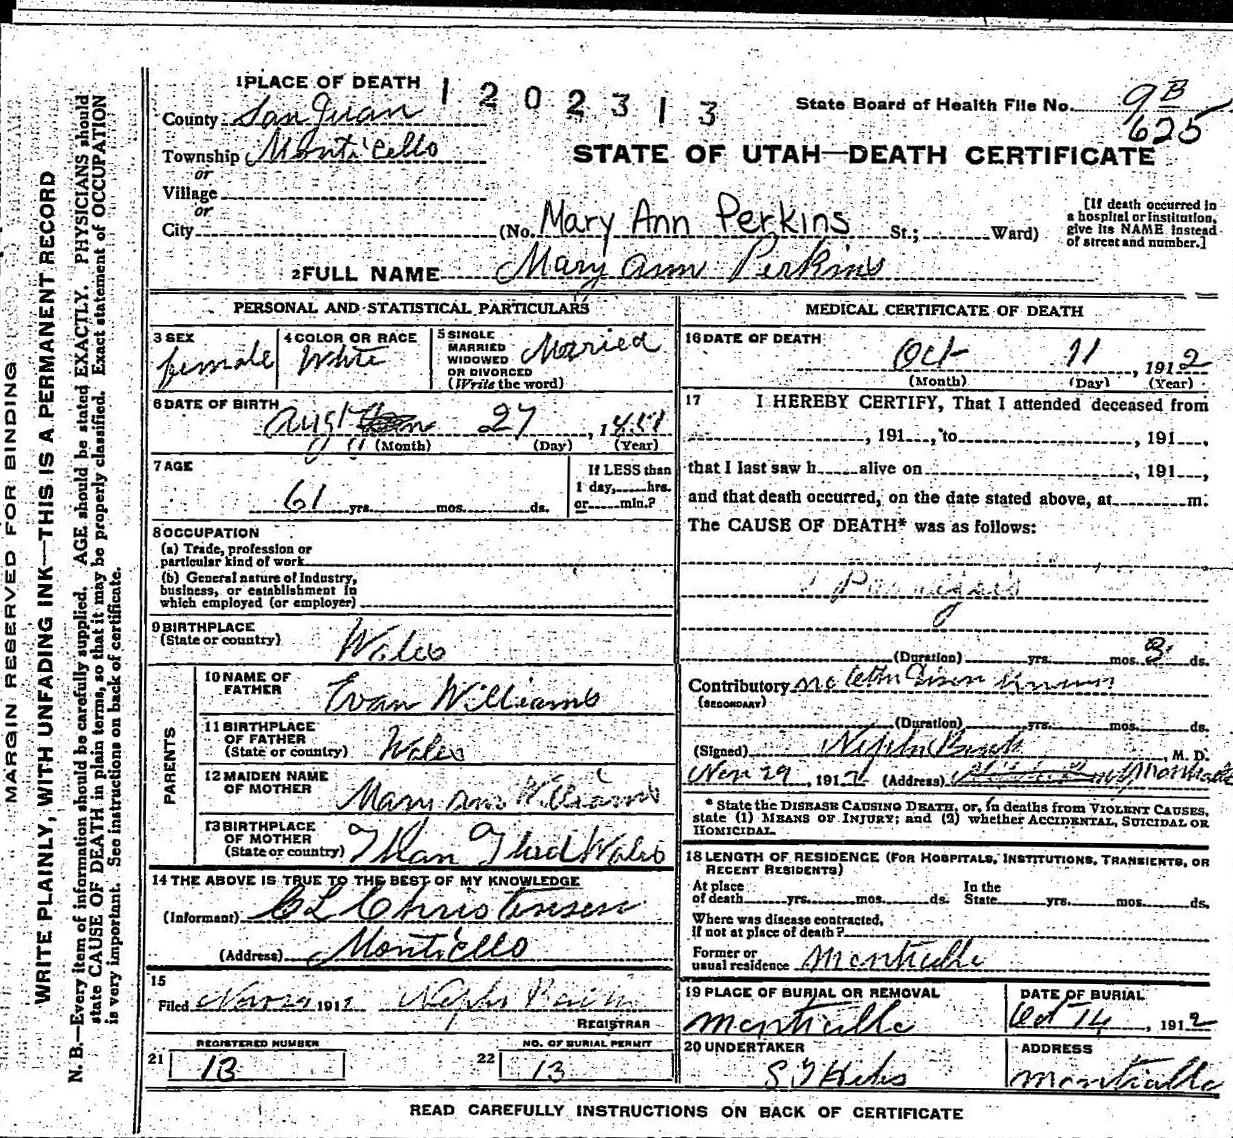 1 PLACE OF DEATH
1202313
State Board of Health File No. 9B
625
County San Juan
Township Monticello
or
Village
or
City
STATE OF UTAH—DEATH CERTIFICATE
(No. Mary Ann Perkins St.; Ward)
[If death occurred in
a hospital or institution,
give its NAME instead
of street and number.]
2 FULL NAME Mary Ann Perkins
MARGIN RESERVED FOR BINDING
WRITE PLAINLY, WITH UNFADING INK—THIS IS A PERMANENT RECORD
N. B.—Every item of information should be carefully supplied. AGE should be stated EXACTLY. PHYSICIANS should
state CAUSE OF DEATH in plain terms, so that it may be properly classified. Exact statement of OCCUPATION
is very important. See instructions on back of certificate.
PERSONAL AND STATISTICAL PARTICULARS
3 SEX
female
4 COLOR OR RACE
White
5 SINGLE
MARRIED
WIDOWED
OR DIVORCED
(Write the word)
Married
6 DATE OF BIRTH
Augst 27, 1851
(Month) (Day) (Year)
7 AGE
61 yrs. mos. ds.
If LESS than
1 day, hrs.
or min.?
8 OCCUPATION
(a) Trade, profession or
particular kind of work
(b) General nature of Industry,
business, or establishment in
which employed (or employer)
9 BIRTHPLACE
(State or country) Wales
PARENTS
10 NAME OF
FATHER Evan Williams
11 BIRTHPLACE
OF FATHER
(State or country) Wales
12 MAIDEN NAME
OF MOTHER Mary Ann Williams
13 BIRTHPLACE
OF MOTHER
(State or country) Wales
14 THE ABOVE IS TRUE TO THE BEST OF MY KNOWLEDGE
(Informant) Christensen
(Address) Monticello
15
Filed Nov 29 1912 Nepho
REGISTRAR
REGISTERED NUMBER
21 13
NO. OF BURIAL PERMIT
22 13
MEDICAL CERTIFICATE OF DEATH
16 DATE OF DEATH
Oct 11, 1912
(Month) (Day) (Year)
17 I HEREBY CERTIFY, That I attended deceased from
, 191 , to , 191 ,
that I last saw h alive on , 191 ,
and that death occurred, on the date stated above, at m.
The CAUSE OF DEATH* was as follows:
(Duration) yrs. mos. 3 ds.
Contributory
(SECONDARY)
(Duration) yrs. mos. ds.
(Signed) , M. D.
Nov 29, 1912 (Address) Monticello
* State the DISEASE CAUSING DEATH, or, in deaths from VIOLENT CAUSES,
state (1) MEANS OF INJURY; and (2) whether ACCIDENTAL, SUICIDAL OR
HOMICIDAL.
18 LENGTH OF RESIDENCE (FOR HOSPITALS, INSTITUTIONS, TRANSIENTS, OR
RECENT RESIDENTS)
At place
of death yrs. mos. ds.
In the
State yrs. mos. ds.
Where was disease contracted,
if not at place of death?
Former or
usual residence Monticello
19 PLACE OF BURIAL OR REMOVAL
Monticello
DATE OF BURIAL
Oct 14, 1912
20 UNDERTAKER
ADDRESS
Monticello
READ CAREFULLY INSTRUCTIONS ON BACK OF CERTIFICATE